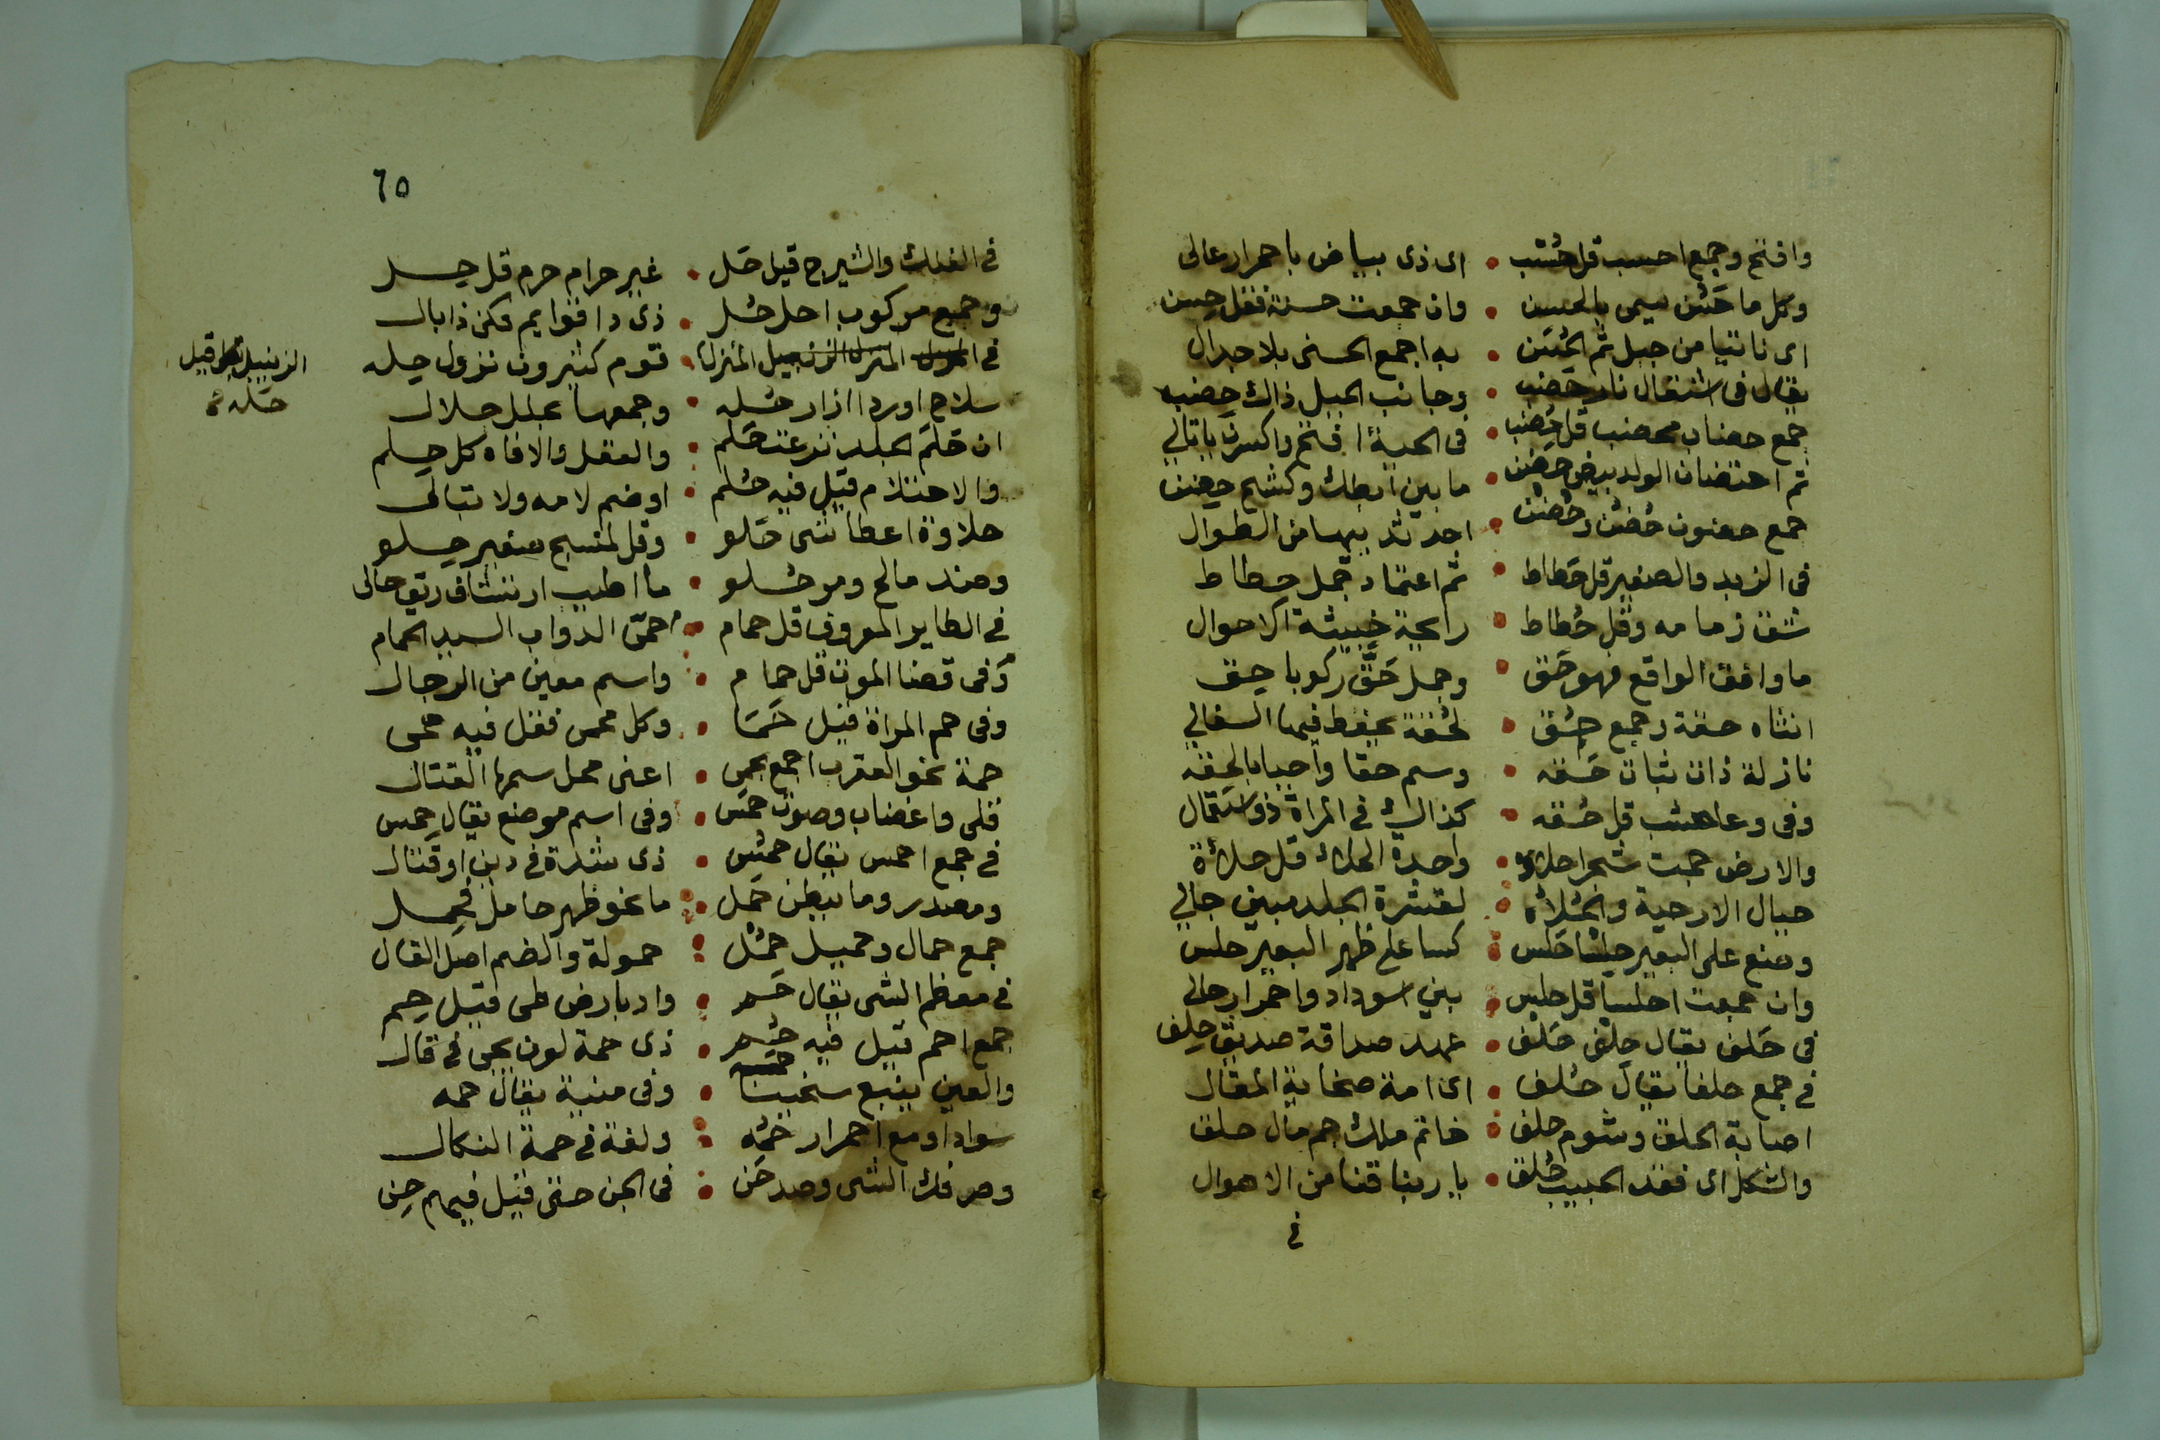 وافتح وجمع احسب قل حُسْب • اى ذى بياض باحمرار عالى
وكل ما حَسُن سمى بالحسن • وان جمعت حسنة فقل حِسن
اى ناتيا من جبل ثم الحُسَن • به اجمع الحسنى بلا جدال
يقال فى اشتعال نار حَضب • وجانب الجبل ذاك حضب
جمع حضاب محضب قل حُضب • فى الحية افتح واكسرن ياتالي
ثم احتضان الولد بيض حَضن • ما بين ابطك وكشح حِضن
جمع حضون حُضُن وحُضْن • احد ثدييها من الطوال
فى الزبد والصغير قل حَطاط • ثم اعتماد جمل حِطاط
شق زمامه وقل حُطاط • رايحة خبيثة الاحوال
ما وافق الواقع فهو حَق • وجمل حَقَّ ركوبا حِق
انثاه حقة وجمع حُقق • لحقة يحفظ فيها الغالي
نازلة ذات ثبات حَقه • وسم حقا واجبا بالحقه
وفى وعا خشب قل حُقه • كذاك فى المراة ذو استمال
والارض حمت شجرا حلاة • واحدة الحلاء قل حلاءة
حبال الارحية والحُلاه • لقشرة الجلد مبين جالي
وضع على البعير حلسا حَلس • كسا على ظهر البعير حلس
وان جمعت احلسا قل حلس • بين اسوداد واحمرار حالى
فى حَلف يقال حِلف حَلف • عهد صداقة صديق حِلف
فى جمع حلفا يقال حُلف • اى امة صخابة المقال
اصابة الحلق وشوم حلق • خاتم ملك جم مال حلق
والثكل اى فقد الحبيب حُلق • يا ربنا قنا من الاهوال
في
٦٥
فى الفلك والشيرج قيل حَل • غير حرام حرم قل حِل
وجمع مركوب احل حُل • ذى دا قوايم فكن ذا بال
فى المنزل الزنبيل المنزل • قوم كثيرون نزول حِله
الزنبيل قيل
حَله
سلاح اوردا ازار حُله • وجمعها بحلل حلال
ان حَلَم الجلد نزعت حَلم • والعقل والافاه كل حِلم
والاحتلام قيل فيه حُلم • او ضم لامه ولا تبالى
حلاوة اعطا شى حَلو • وقل لمنسج صغير حِلو
وضد مالح ومر حُلو • ما اطيب ارتشاف ريق حالى
فى الطاير المعروف قل حمام • احمق الدواب السيد الحمام
وفى قضا الموت قل حمام • واسم معين من الرجال
وفى حم المراة قيل حَمَا • وكل محمى فقل فيه حمى
حمة نحو العقرب اجمع بحمى • اعنى محل سمها القتال
قلى واغضاب وصوت حمس • وفى اسم موضع يقال حِمس
فى جمع احمس يقال حمُس • ذى شدة فى دين او قتال
ومصدر وما ببطن حَمل • ما نحو ظهر حامل فحِمل
جمع حمال وحميل حمُل • حمولة والضم اصل القال
فى معظم الشى يقال حَم • واد بارض طى قيل حِم
جمع احم قيل فيه حُم • ذى حمة لون يجى فى قال
والعين ينبع سخينا حَمه • وفى منية يقال حمه
سوادا ومع احمرار حُمه • ولغة فى حمة النكال
وصرفك الشى وصد حَن • فى الجن حتى قيل فيهم حِن